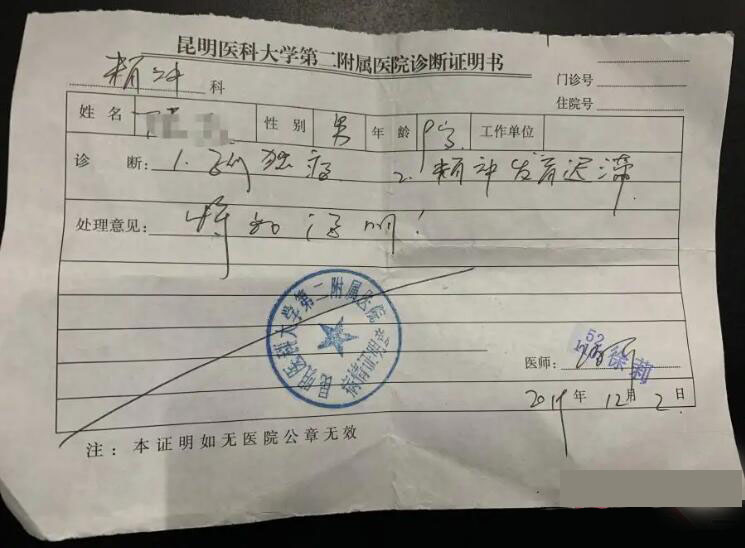 昆明医科大学第二附属医院诊断证明书
精神科
门诊号
住院号
姓名 性别 男 年龄 9岁 工作单位
诊断: 1. 孤独症 2. 精神发育迟滞
处理意见: 特此证明!
昆明医科大学第二附属医院
诊断证明专用章
医师: 徐莉
2019年12月2日
注:本证明如无医院公章无效